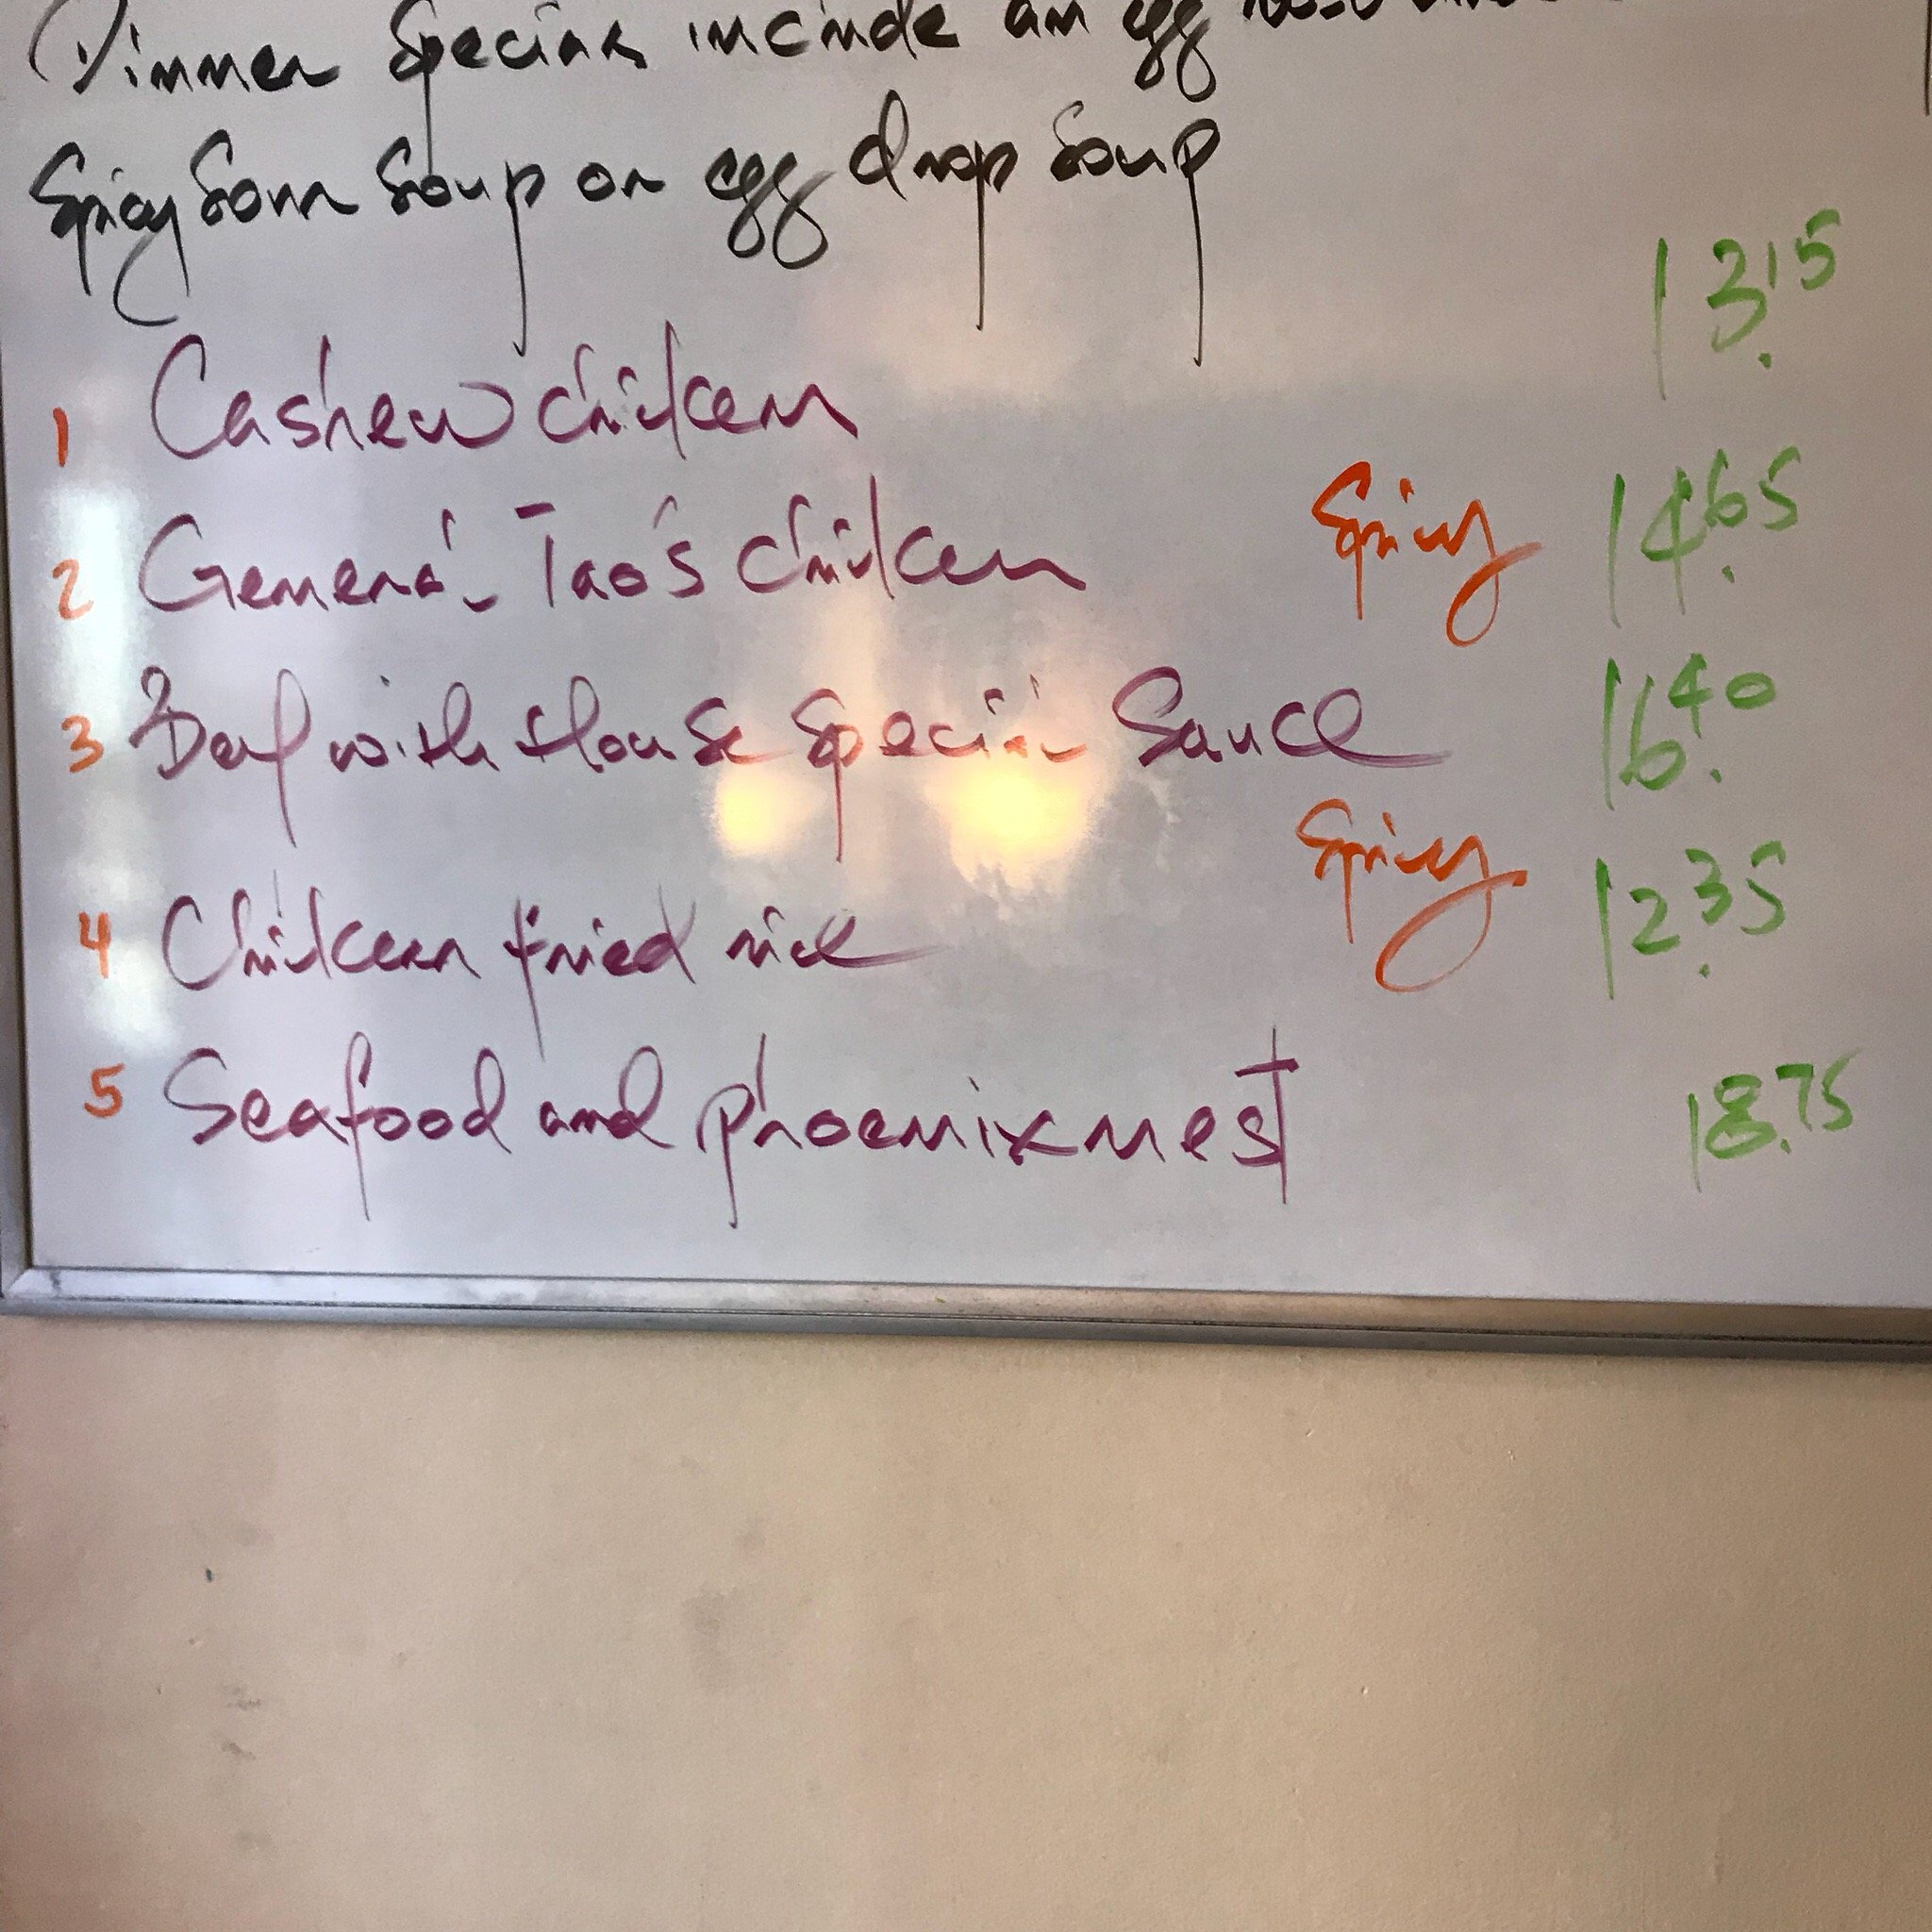 Dinner Specials include an egg
Spicy Sour Soup or egg drop Soup
1 Cashew Chicken 13.15
2 General Tao's Chicken Spicy 14.65
3 Beef with House Special Sauce 16.40
4 Chicken fried rice Spicy 12.35
5 Seafood and phoenix nest 18.75